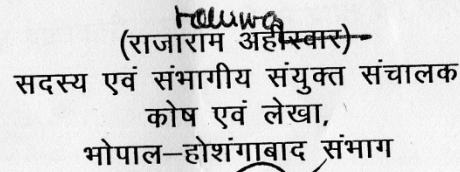 (राजाराम अहीरवार)
सदस्य एवं संभागीय संयुक्त संचालक
कोष एवं लेखा,
भोपाल–होशंगाबाद संभाग